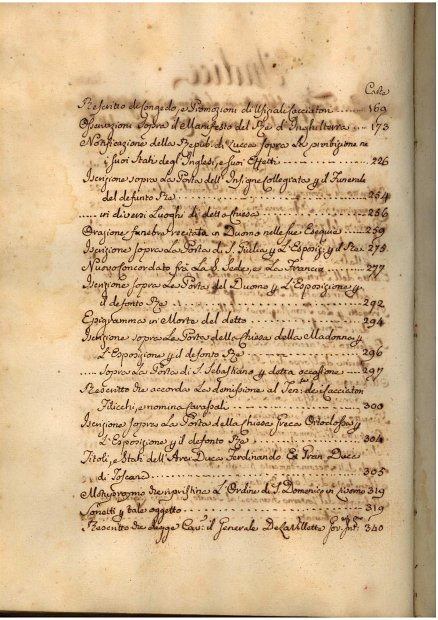 Carte
Rescritto di Congedo, e Promozioni di Ufiziali Cacciatori ...... 169
Osservazioni sopra il Manifesto del Re d'Inghilterra ... 173
Notificazione della Repub: di Lucca sopra la proibizione ne
i suoi Stati degl'Inglesi, e suoi Effetti ............ 226
Iscrizione sopra la Porta dell'Insigne Collegiata p il Funerale
del defunto Re ............ 254
..... in diversi Luoghi di detta Chiesa ............ 256
Orazione funebre recitata in Duomo nelle sue Esequie ... 259
Iscrizione sopra la Porta di S. Giulia p l'Esposiz: p il Re 275
Nuovo Concordato frà la S. Sede, e la Francia ........ 277
Iscrizione sopra la Porta del Duomo p l'Esposizione p
il defonto Re ............ 292
Epigramma in Morte del detto ............ 294
Iscrizione sopra la Porta della Chiesa della Madonna p
l'Esposizione p il defonto Re ............ 296
..... sopra la Porta di S. Sebastiano p detta occasione .... 297
Rescritto che accorda la demissione al Ten: de Cacciatori
Filicchi, e nomina ............ 300
Iscrizione sopra la Porta della Chiesa Greca Ortodossa p
l'Esposizione p il defonto Re ............ 304
Titoli, e Stati dell'Arci Duca Ferdinando Ex Gran Duca
di Toscana ............ 305
Motuproprio che ripristina l'Ordine di S. Domenico in Livorno 319
Sonetti p tale oggetto ............ 319
Rescritto che elegge Cav: il Generale De la Villette Gov: Int: 340